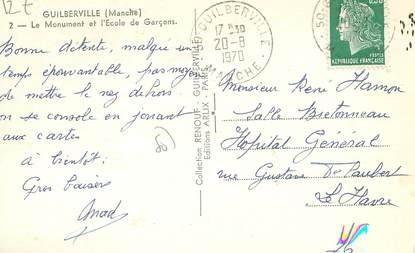 12 €
GUILBERVILLE (Manche)
2 - Le Monument et l'Ecole de Garçons.
Bonne détente, malgré un
temps épouvantable, pas moyen
de mettre le nez dehors
on se console en jouant
aux cartes
à bientôt
Gros baisers
Collection RENOUF GUILBERVILLE
Editions ARLIX - PARIS
GUILBERVILLE
17 H 30
20-8
1970
MANCHE
0.30
REPUBLIQUE FRANÇAISE
Monsieur René Hamon
Salle Bretonneau
Hôpital Général
rue Gustave Flaubert
Le Havre